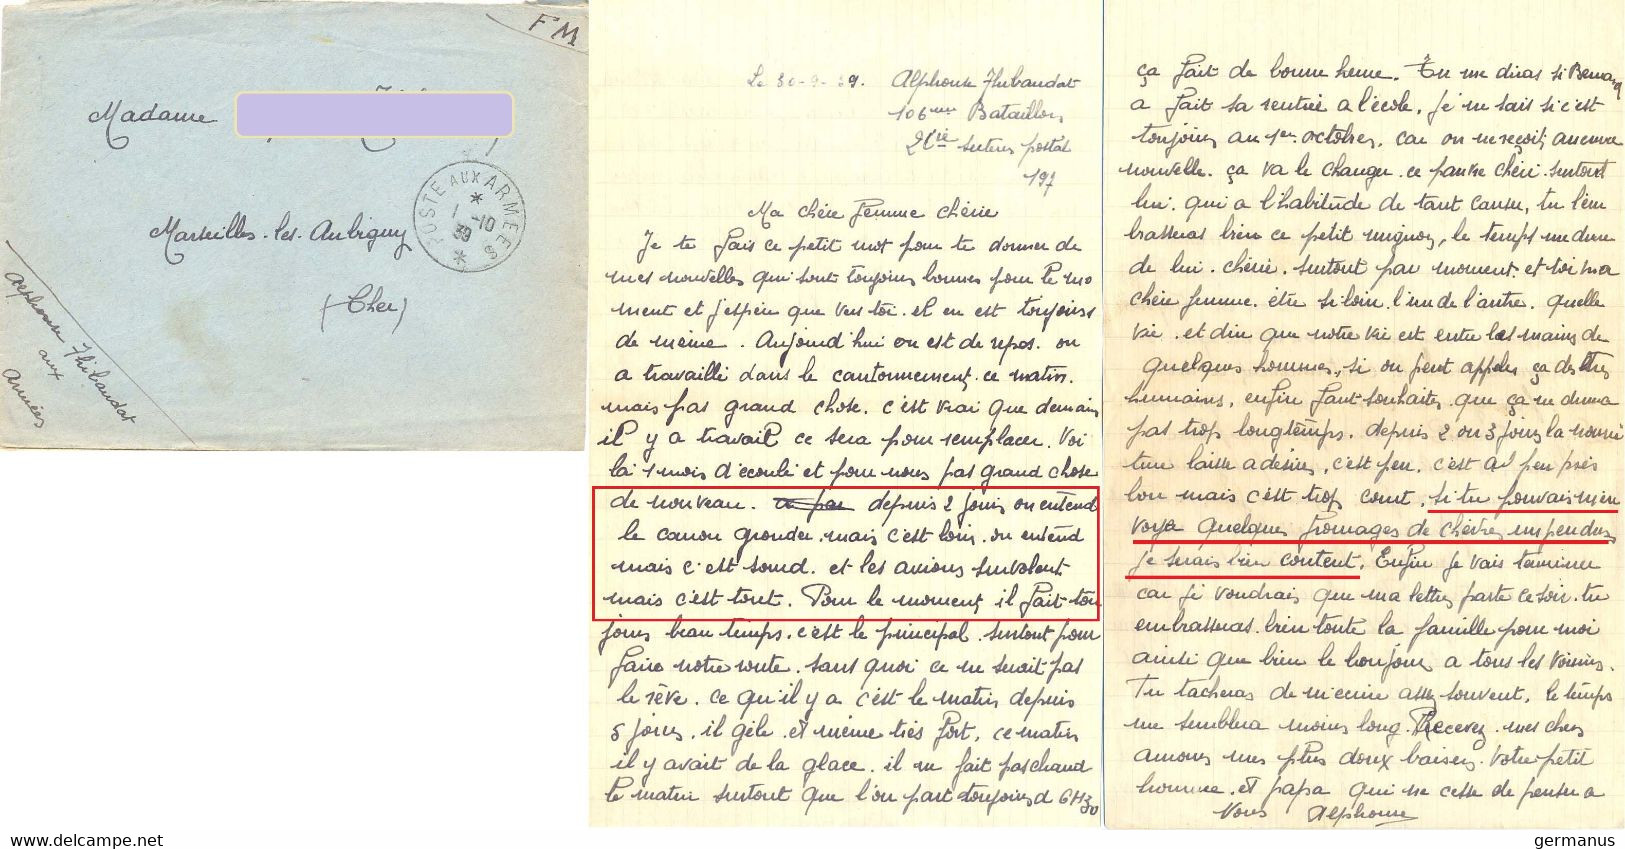 FM
Madame
Marseilles-les-Aubigny
(Cher)
POSTE AUX ARMEES
1-10
39
Alphonse Thibaudat
aux
Armées
Le 30-9-39. Alphonse Thibaudat
106eme Bataillon
2Cie secteur postal
197
Ma chère Femme chérie
Je te fais ce petit mot pour te donner de
mes nouvelles qui sont toujours bonnes pour le mo
ment et j'espère que vers toi. il en est toujours
de même. Aujourd'hui on est de repos. on
a travaillé dans le cantonnement ce matin.
mais pas grand chose. c'est vrai que demain
il y a travail ce sera pour remplacer. Voi
là 1 mois d'écoulé et pour nous pas grand chose
de nouveau. depuis 2 jours on entend
le canon gronder. mais c'est loin. on entend
mais c'est sourd. et les avions survolent
mais c'est tout. Pour le moment il fait tou
jours beau temps. c'est le principal. surtout pour
faire notre route. sans quoi ce ne serait pas
le rêve. ce qu'il y a c'est le matin depuis
5 jours, il gèle et même très fort, ce matin
il y avait de la glace. il ne fait pas chaud
le matin surtout que l'on part toujours à 6H30
ça fait de bonne heure. Tu me diras si Bernard
a fait sa rentrée a l'école, je ne sais si c'est
toujours au 1er octobre, car on ne reçoit aucune
nouvelle. ça va le changer. ce pauvre chéri. surtout
lui. qui a l'habitude de tant causer, tu l'em
brasseras bien ce petit mignon, le temps me dure
de lui. chérie. surtout par moment. et toi ma
chère femme. être si loin l'un de l'autre. quelle
vie. et dire que notre vie est entre les mains de
quelques hommes, si on peut appeler ça des êtres
humains, enfin faut souhaiter que ça ne durera
pas trop longtemps. depuis 2 ou 3 jours la nourri
ture laisse a désirer, c'est peu. c'est a peu près
bon mais c'est trop court. si tu pouvais m'en
voyer quelques fromages de chèvre un peu durs
je serais bien content. Enfin je vais terminer
car je voudrais que ma lettre parte ce soir. tu
embrasseras bien toute la famille pour moi
ainsi que bien le bonjour a tous les voisins.
Tu tacheras de m'écrire assez souvent, le temps
me semblera moins long. Recevez. mes chers
amours mes plus doux baisers. Votre petit
homme et papa qui ne cesse de penser a
Vous Alphonse
www.delcampe.net
germanus